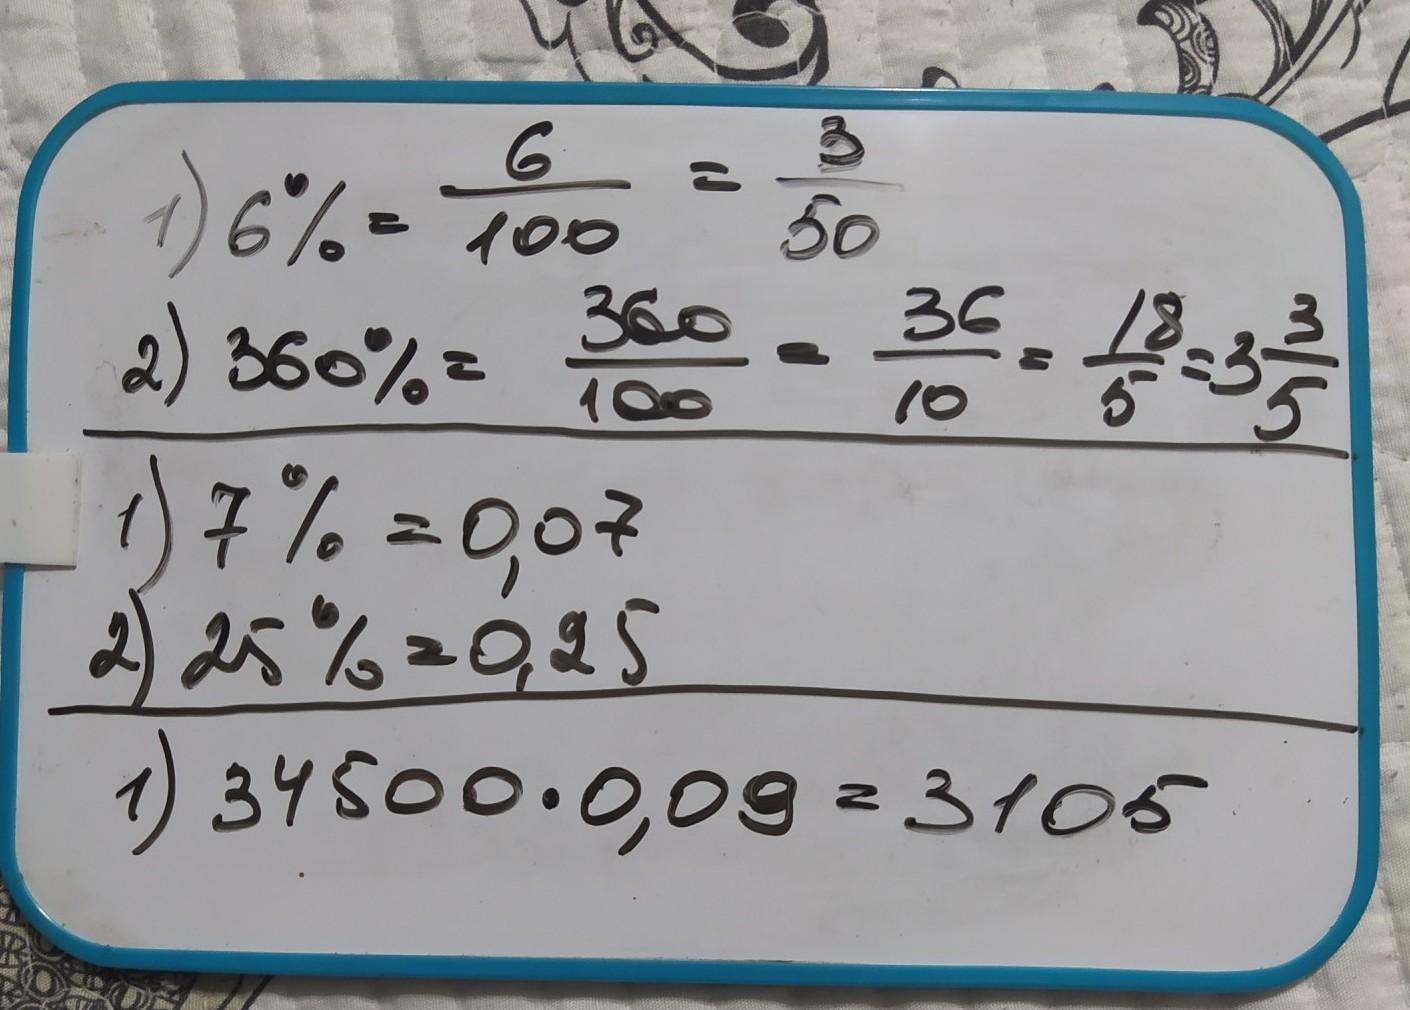 1) 6% = 6/100 = 3/50
2) 360% = 360/100 = 36/10 = 18/5 = 3 3/5
1) 7% = 0,07
2) 25% = 0,25
1) 34500 · 0,09 = 3105